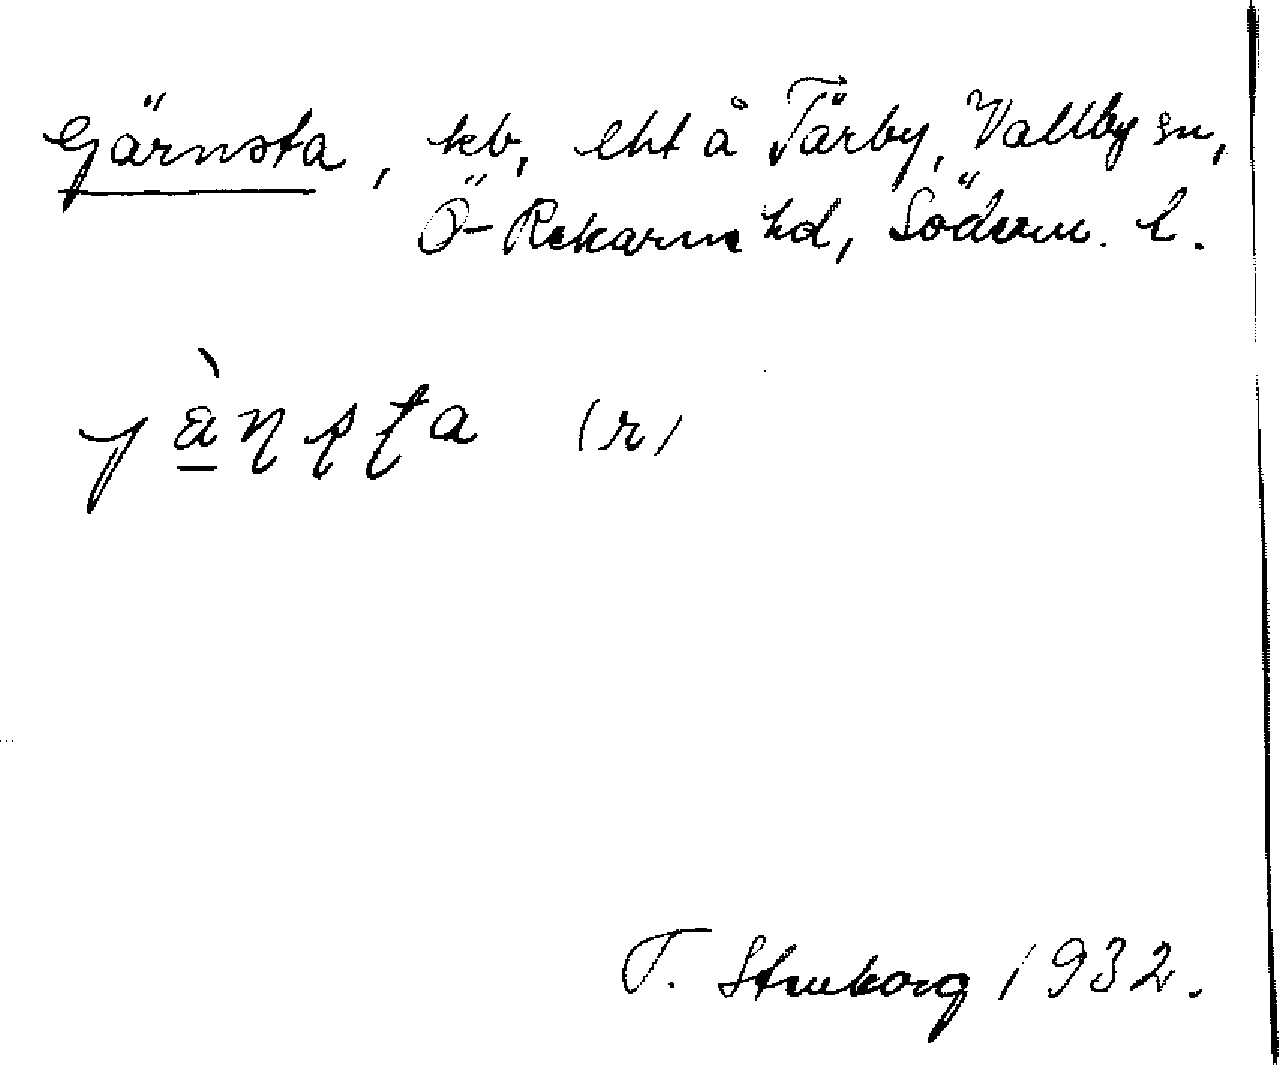 Gärnsta, kb, lht å Tärby, Vallby sn,
Ö-Rekarne hd, Söderm. l.
(r)
T. Stenborg 1932.